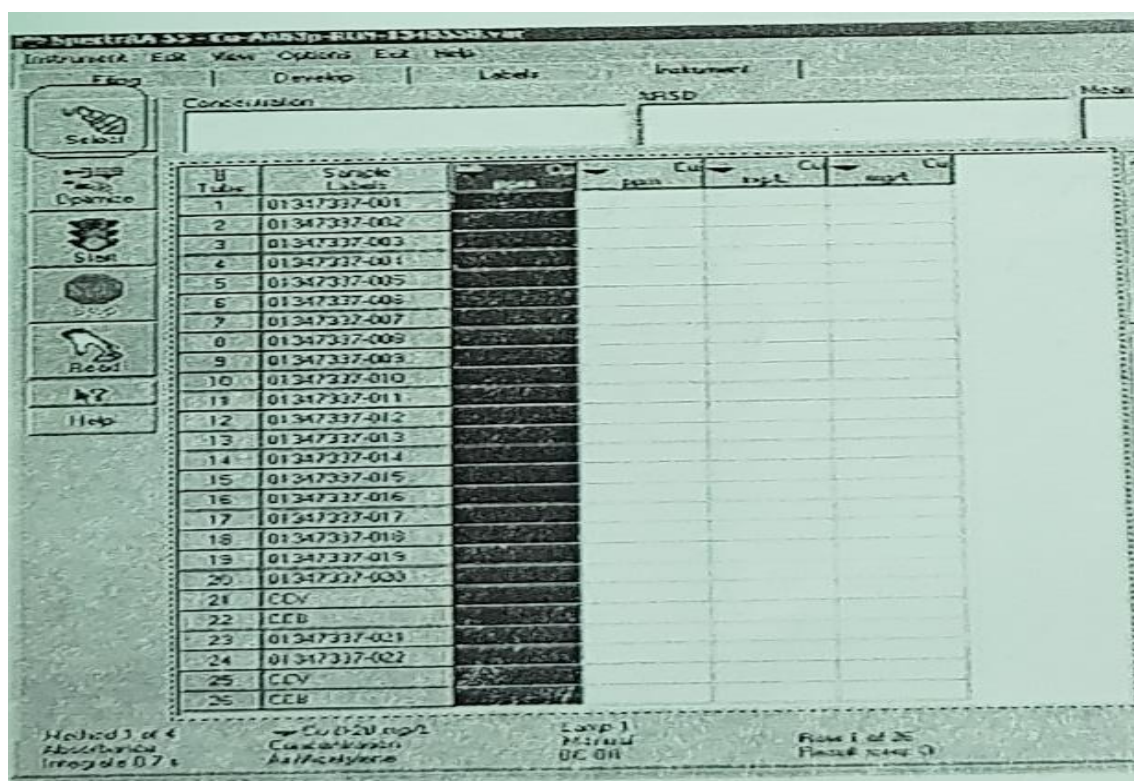 Instrument Edit View Options Exit Help
Develop Labels Instrument
Concentration %RSD Mean
Select
Optimize
Start
Stop
Read
Help
Tube Sample Labels ppm Cu ppm Cu mg/L Cu mg/L Cu
1 01347337-001
2 01347337-002
3 01347337-003
4 01347337-004
5 01347337-005
6 01347337-006
7 01347337-007
8 01347337-008
9 01347337-009
10 01347337-010
11 01347337-011
12 01347337-012
13 01347337-013
14 01347337-014
15 01347337-015
16 01347337-016
17 01347337-017
18 01347337-018
19 01347337-019
20 01347337-020
21 CCV
22 CCB
23 01347337-021
24 01347337-022
25 CCV
26 CCB
Method 1 of 4 Cu 0-20 mg/L Lamp 1 Row 1 of 26
Absorbance Concentration Manual
Integrate 0.7 s Air/Acetylene